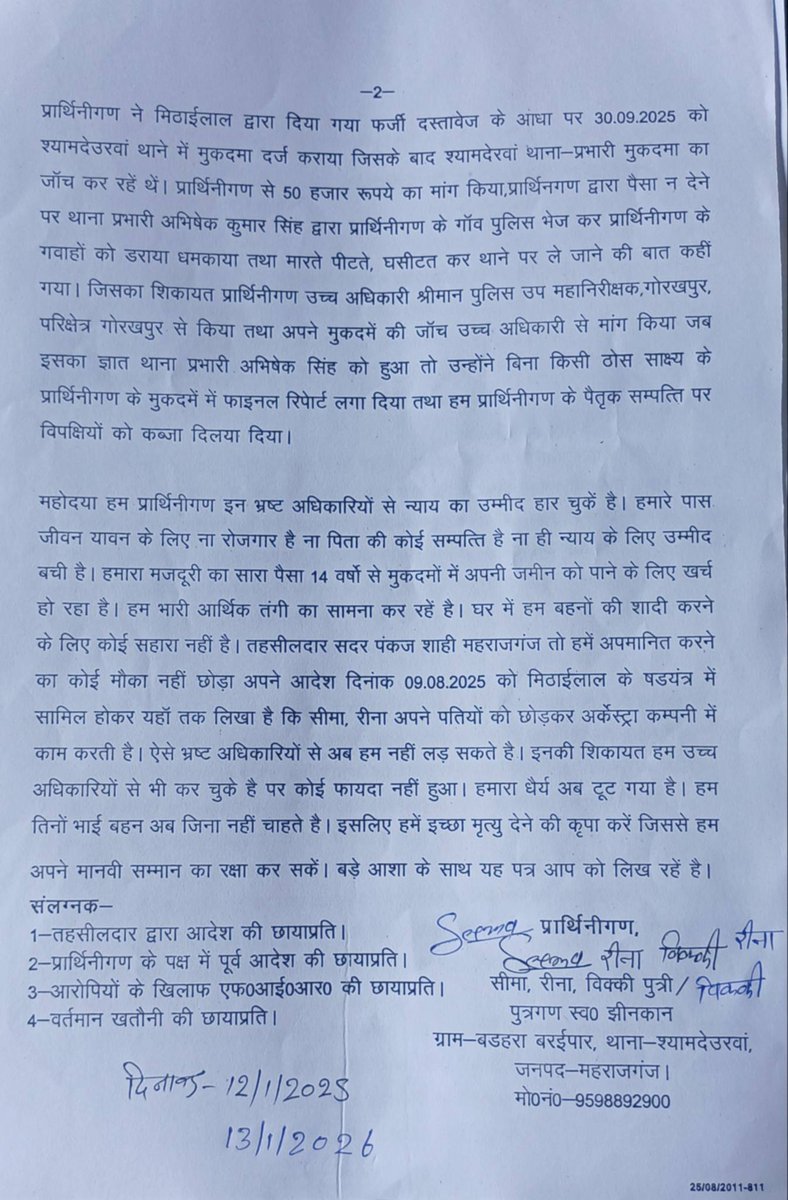 –2–
प्रार्थिनीगण ने मिठाईलाल द्वारा दिया गया फर्जी दस्तावेज के आंधा पर 30.09.2025 को
श्यामदेउरवां थाने में मुकदमा दर्ज कराया जिसके बाद श्यामदेरवां थाना–प्रभारी मुकदमा का
जॉच कर रहें थें। प्रार्थिनीगण से 50 हजार रूपये का मांग किया,प्रार्थिनगण द्वारा पैसा न देने
पर थाना प्रभारी अभिषेक कुमार सिंह द्वारा प्रार्थिनीगण के गॉव पुलिस भेज कर प्रार्थिनीगण के
गवाहों को डराया धमकाया तथा मारते पीटते, घसीटत कर थाने पर ले जाने की बात कहीं
गया। जिसका शिकायत प्रार्थिनीगण उच्च अधिकारी श्रीमान पुलिस उप महानिरीक्षक,गोरखपुर,
परिक्षेत्र गोरखपुर से किया तथा अपने मुकदमें की जॉच उच्च अधिकारी से मांग किया जब
इसका ज्ञात थाना प्रभारी अभिषेक सिंह को हुआ तो उन्होंने बिना किसी ठोस साक्ष्य के
प्रार्थिनीगण के मुकदमें में फाइनल रिपेार्ट लगा दिया तथा हम प्रार्थिनीगण के पैतृक सम्पत्ति पर
विपक्षियों को कब्जा दिलया दिया।
महोदया हम प्रार्थिनीगण इन भ्रष्ट अधिकारियों से न्याय का उम्मीद हार चुकें है। हमारे पास
जीवन यावन के लिए ना रोजगार है ना पिता की कोई सम्पत्ति है ना ही न्याय के लिए उम्मीद
बची है। हमारा मजदूरी का सारा पैसा 14 वर्षो से मुकदमों में अपनी जमीन को पाने के लिए खर्च
हो रहा है। हम भारी आर्थिक तंगी का सामना कर रहें है। घर में हम बहनों की शादी करने
के लिए कोई सहारा नहीं है। तहसीलदार सदर पंकज शाही महराजगंज तो हमें अपमानित करने
का कोई मौका नहीं छोड़ा अपने आदेश दिनांक 09.08.2025 को मिठाईलाल के षडयंत्र में
सामिल होकर यहॉ तक लिखा है कि सीमा, रीना अपने पतियों को छोड़कर अर्केस्ट्रा कम्पनी में
काम करती है। ऐसे भ्रष्ट अधिकारियों से अब हम नहीं लड़ सकते है। इनकी शिकायत हम उच्च
अधिकारियों से भी कर चुके है पर कोई फायदा नहीं हुआ। हमारा धैर्य अब टूट गया है। हम
तिनों भाई बहन अब जिना नहीं चाहते है। इसलिए हमें इच्छा मृत्यु देने की कृपा करें जिससे हम
अपने मानवी सम्मान का रक्षा कर सकें। बड़े आशा के साथ यह पत्र आप को लिख रहें है।
संलग्नक–
1–तहसीलदार द्वारा आदेश की छायाप्रति।
2–प्रार्थिनीगण के पक्ष में पूर्व आदेश की छायाप्रति।
3–आरोपियों के खिलाफ एफ0आई0आर0 की छायाप्रति।
4–वर्तमान खतौनी की छायाप्रति।
Seema प्रार्थिनीगण,
Seema रीना विक्की रीना
सीमा, रीना, विक्की पुत्री/ विक्की
पुत्रगण स्व0 झीनकान
ग्राम–बडहरा बरईपार, थाना–श्यामदेउरवां,
जनपद–महराजगंज।
मो0नं0–9598892900
दिनांक- 12/1/2025
13/1/2026
25/08/2011-811